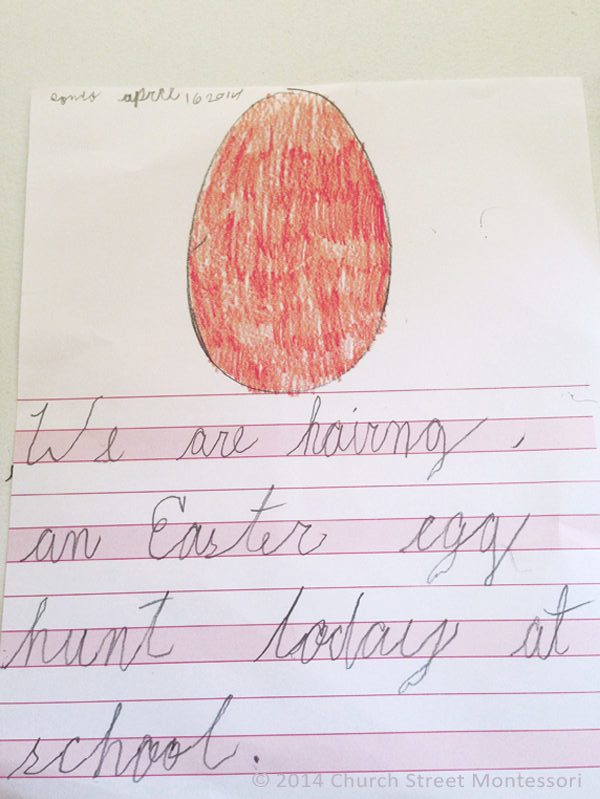 april 16 2014
We are hairng
an Easter egg
hunt today at
school.
© 2014 Church Street Montessori